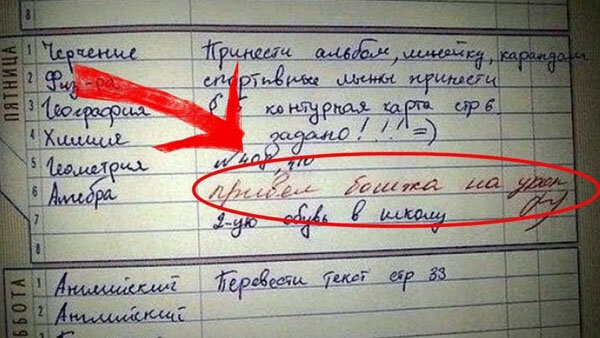 ПЯТНИЦА
1 Черчение Принести альбом, линейку, карандаш
2 Физ-ра спортивные лыжы принести
3 География контурная карта стр 6
4 Химия задано!!! =)
5 Геометрия №408, 410
6 Алгебра привёл бомжа на урок
7 2-ую обувь в школу
8
СУББОТА
1 Английский Перевести текст стр 33
2 Английский
3